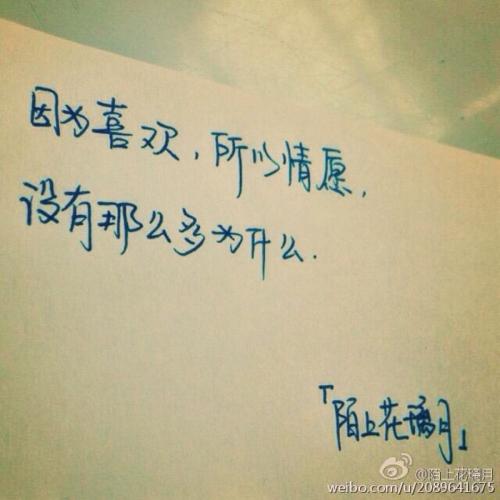 因为喜欢，所以情愿，
没有那么多为什么.
「陌上花璃月」
@陌上花璃月
weibo.com/u/2089641675